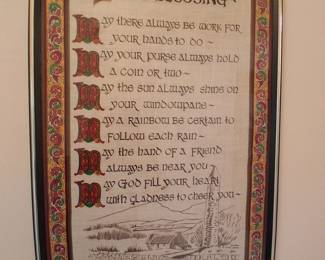 BLESSING
May there always be work for
your hands to do ~
May your purse always hold
a coin or two ~
May the sun always shine on
your windowpane ~
May a rainbow be certain to
follow each rain ~
May the hand of a friend
always be near you
May God fill your heart
with gladness to cheer you ~